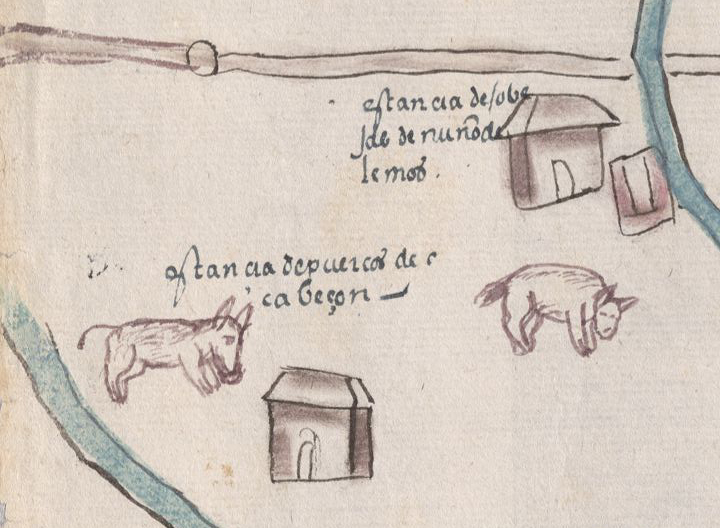 estancia de obe
jas de nuño de
lemos
estancia de puercos de c
cabeçon